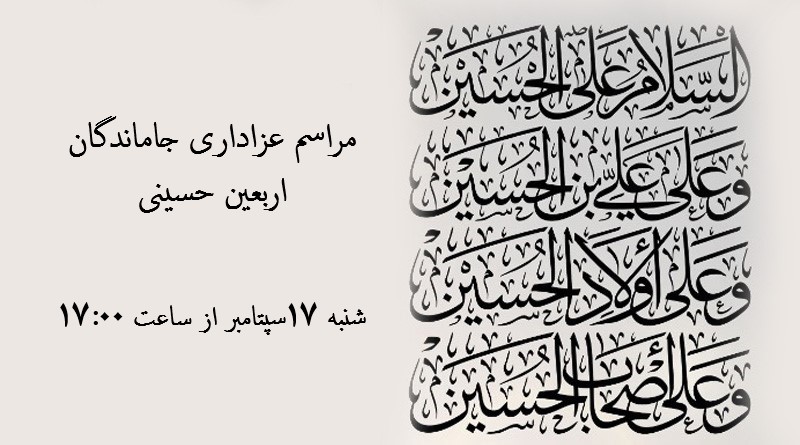 السلام على الحسين
وعلى علي بن الحسين
وعلى أولاد الحسين
وعلى أصحاب الحسين
مراسم عزاداری جاماندگان
اربعین حسینی
شنبه ۱۷سپتامبر از ساعت ۱۷:۰۰